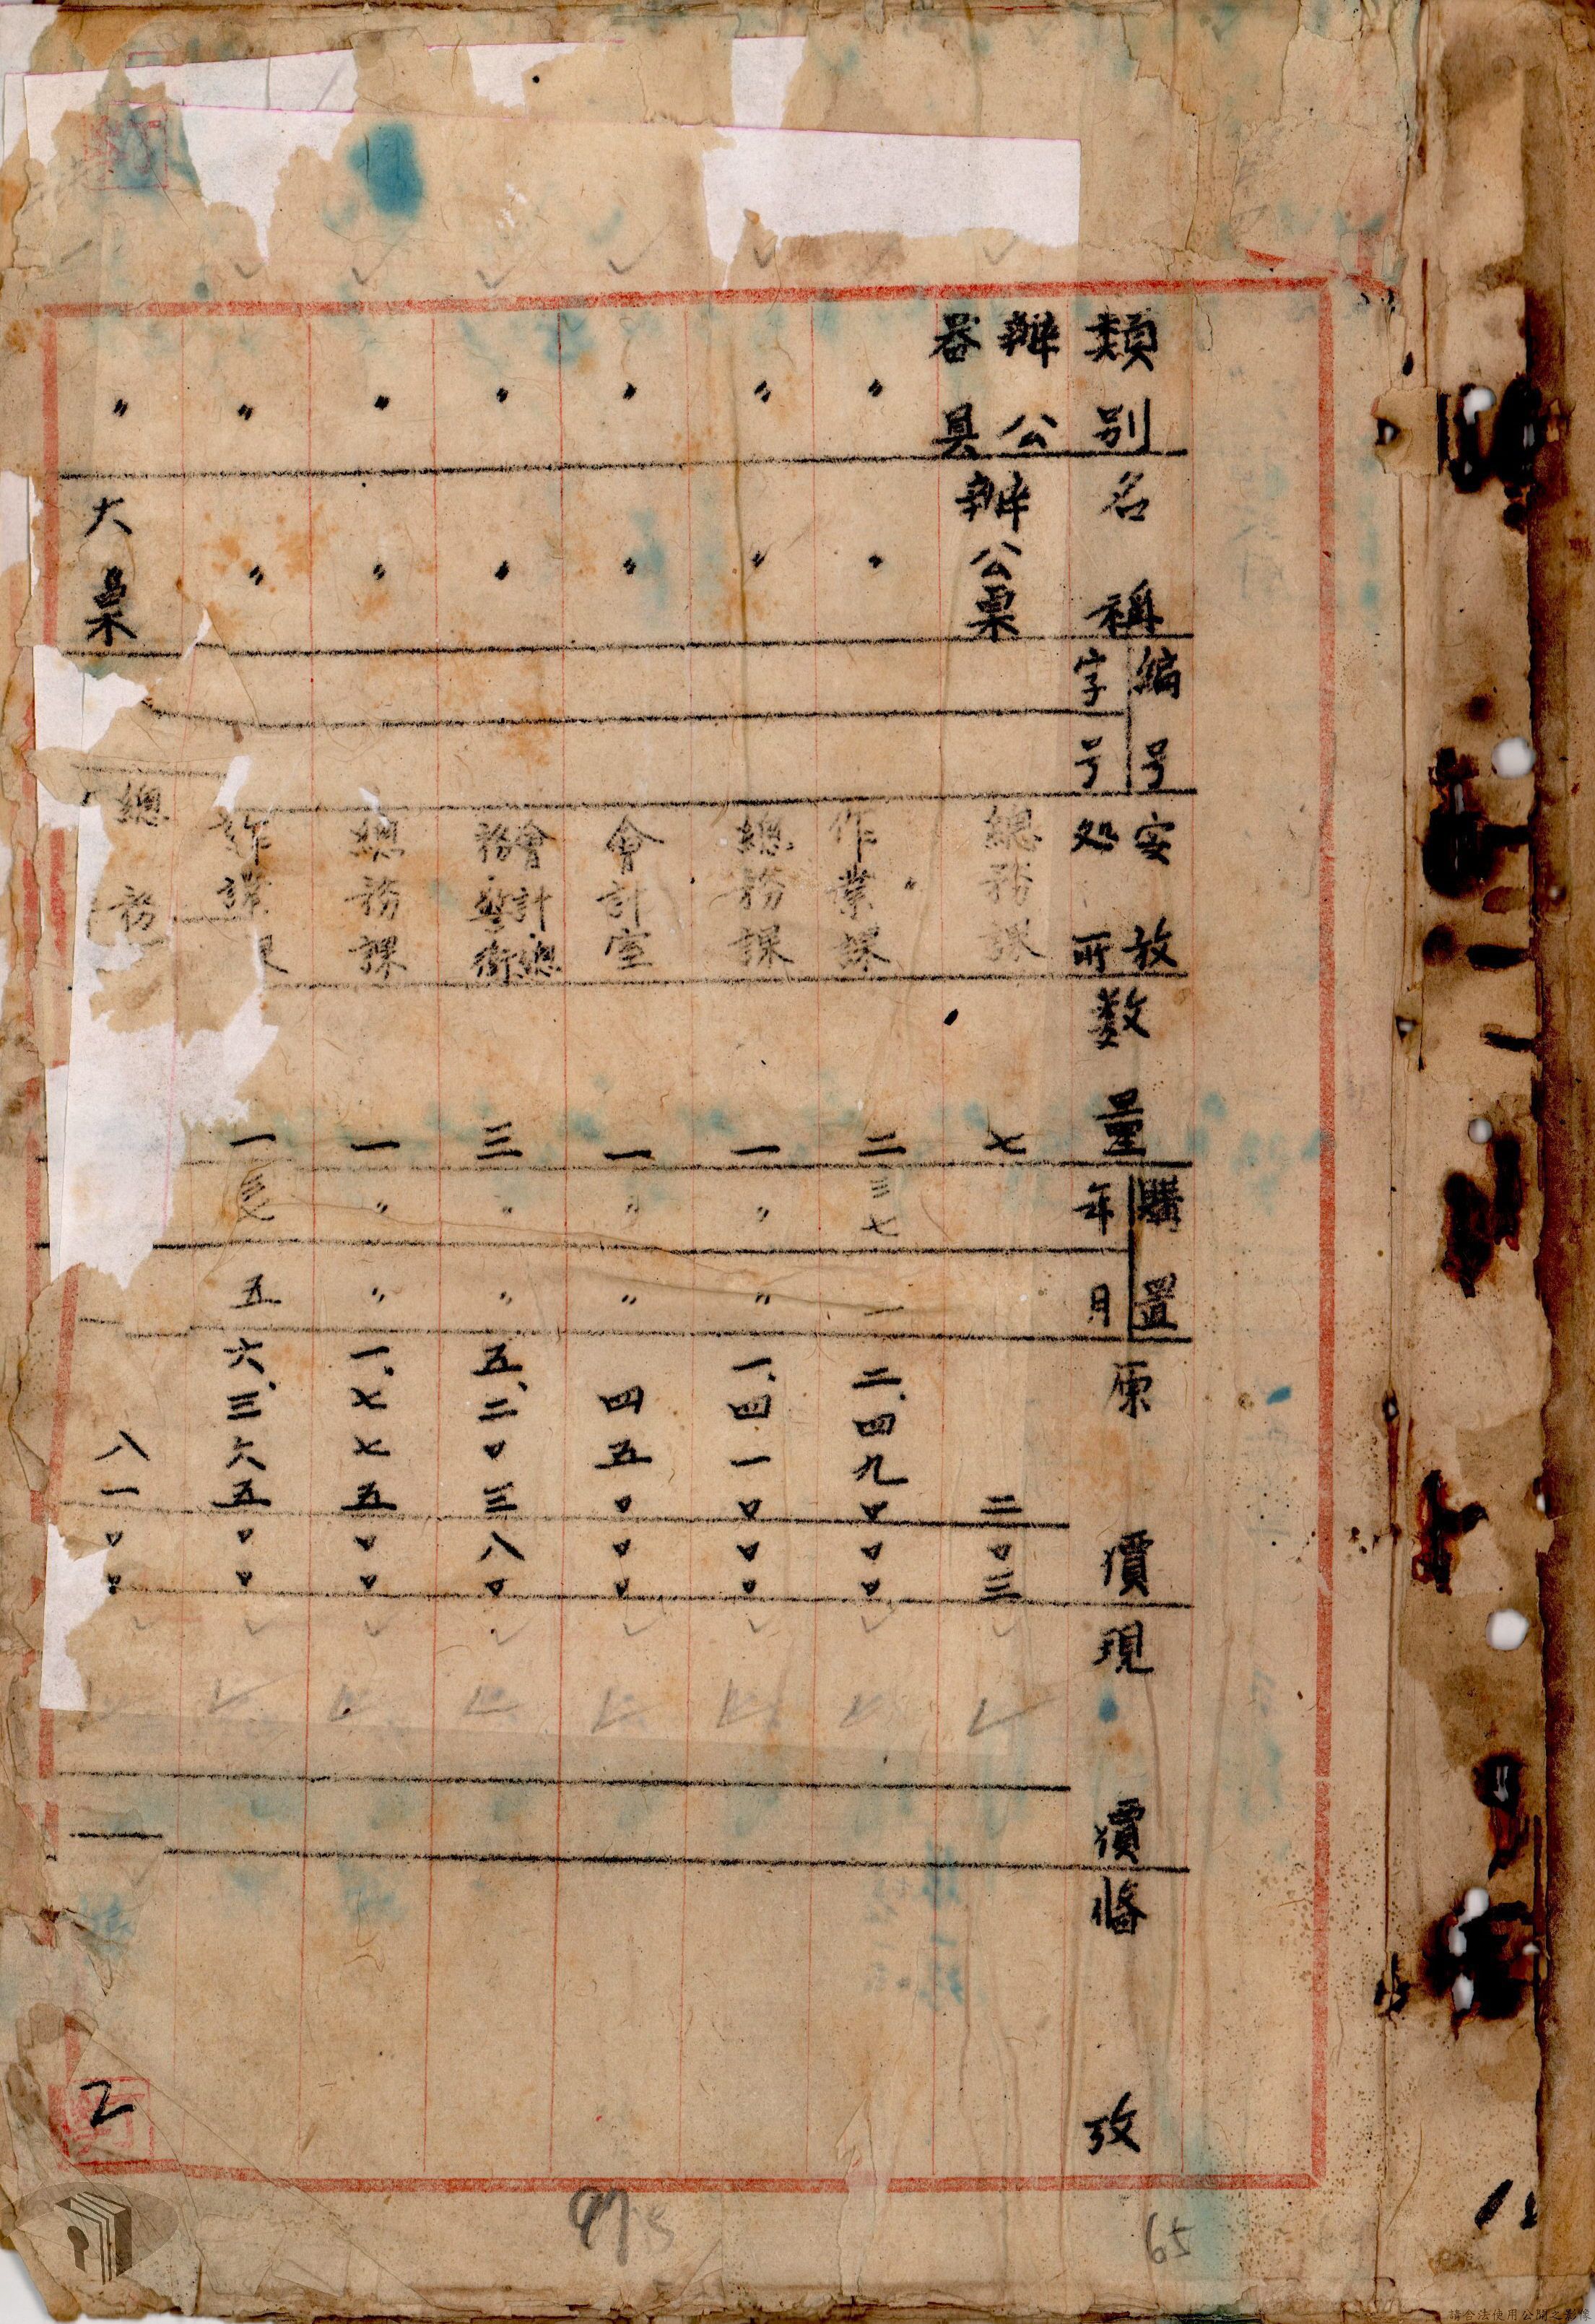 類別 名稱 編号 字号 安放処所 数量 購置 年 月 原價 現價 俻攷
辦公器具 辦公桌 總務課 七 二〇三
〃 〃 作業課 二 三七 一 二、四九〇〇〇
〃 〃 總務課 一 〃 〃 一、四一〇〇〇
〃 〃 會計室 一 〃 〃 四五〇〇〇
〃 〃 會計總務警衛 三 〃 〃 五、二〇三八〇
〃 〃 總務課 一 〃 〃 一、七七五〇〇
〃 〃 課 一 三七 五 六、三六五〇〇
〃 大桌 總務 八一〇〇
2
975
65
請合法使用公開之影像